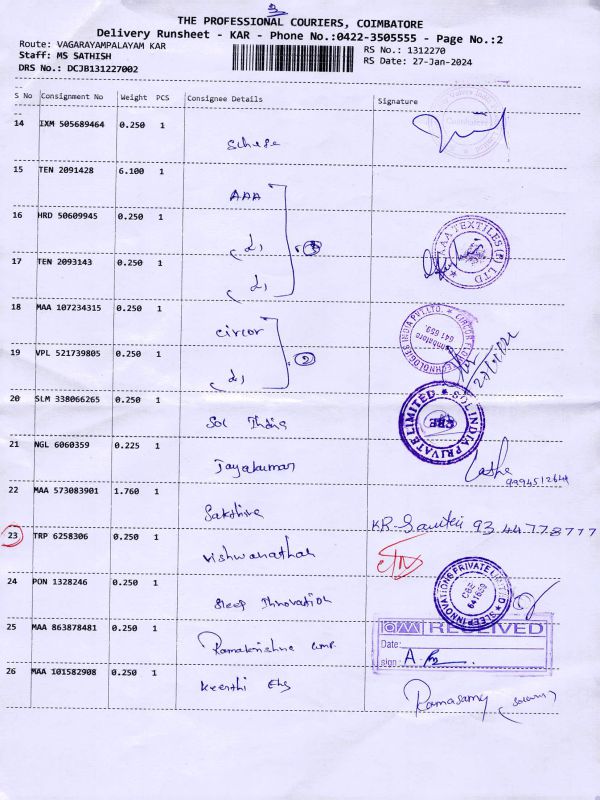 3
THE PROFESSIONAL COURIERS, COIMBATORE
Delivery Runsheet - KAR - Phone No.:0422-3505555 - Page No.:2
Route: VAGARAYAMPALAYAM KAR
RS No.: 1312270
Staff: MS SATHISH
RS Date: 27-Jan-2024
DRS No.: DCJB131227002
S No Consignment No Weight PCS Consignee Details Signature
14 IXM 505689464 0.250 1
15 TEN 2091428 6.100 1
AAA
16 HRD 50609945 0.250 1
AAA TEXTILES (P) LTD
17 TEN 2093143 0.250 1
18 MAA 107234315 0.250 1
circor
CIRCOR FLOW TECHNOLOGIES INDIA PVT.LTD.
Coimbatore
641 659
19 VPL 521739805 0.250 1
2
20 SLM 338066265 0.250 1
Sol India
SOL INDIA PRIVATE LIMITED
CBE
21 NGL 6060359 0.225 1
Jayakumar
Latha
9994512641
22 MAA 573083901 1.760 1
Sakthive
KR-
93 44778777
23 TRP 6258306 0.250 1
Vishwanathan
24 PON 1328246 0.250 1
Sleep Innovation
SLEEP INNOVATIONS PRIVATE LIMITED
CBE
641659
25 MAA 863878481 0.250 1
Ramakrishna
RECEIVED
Date:
sign:
26 MAA 101582908 0.250 1
Keerthi Eng
Ramasamy